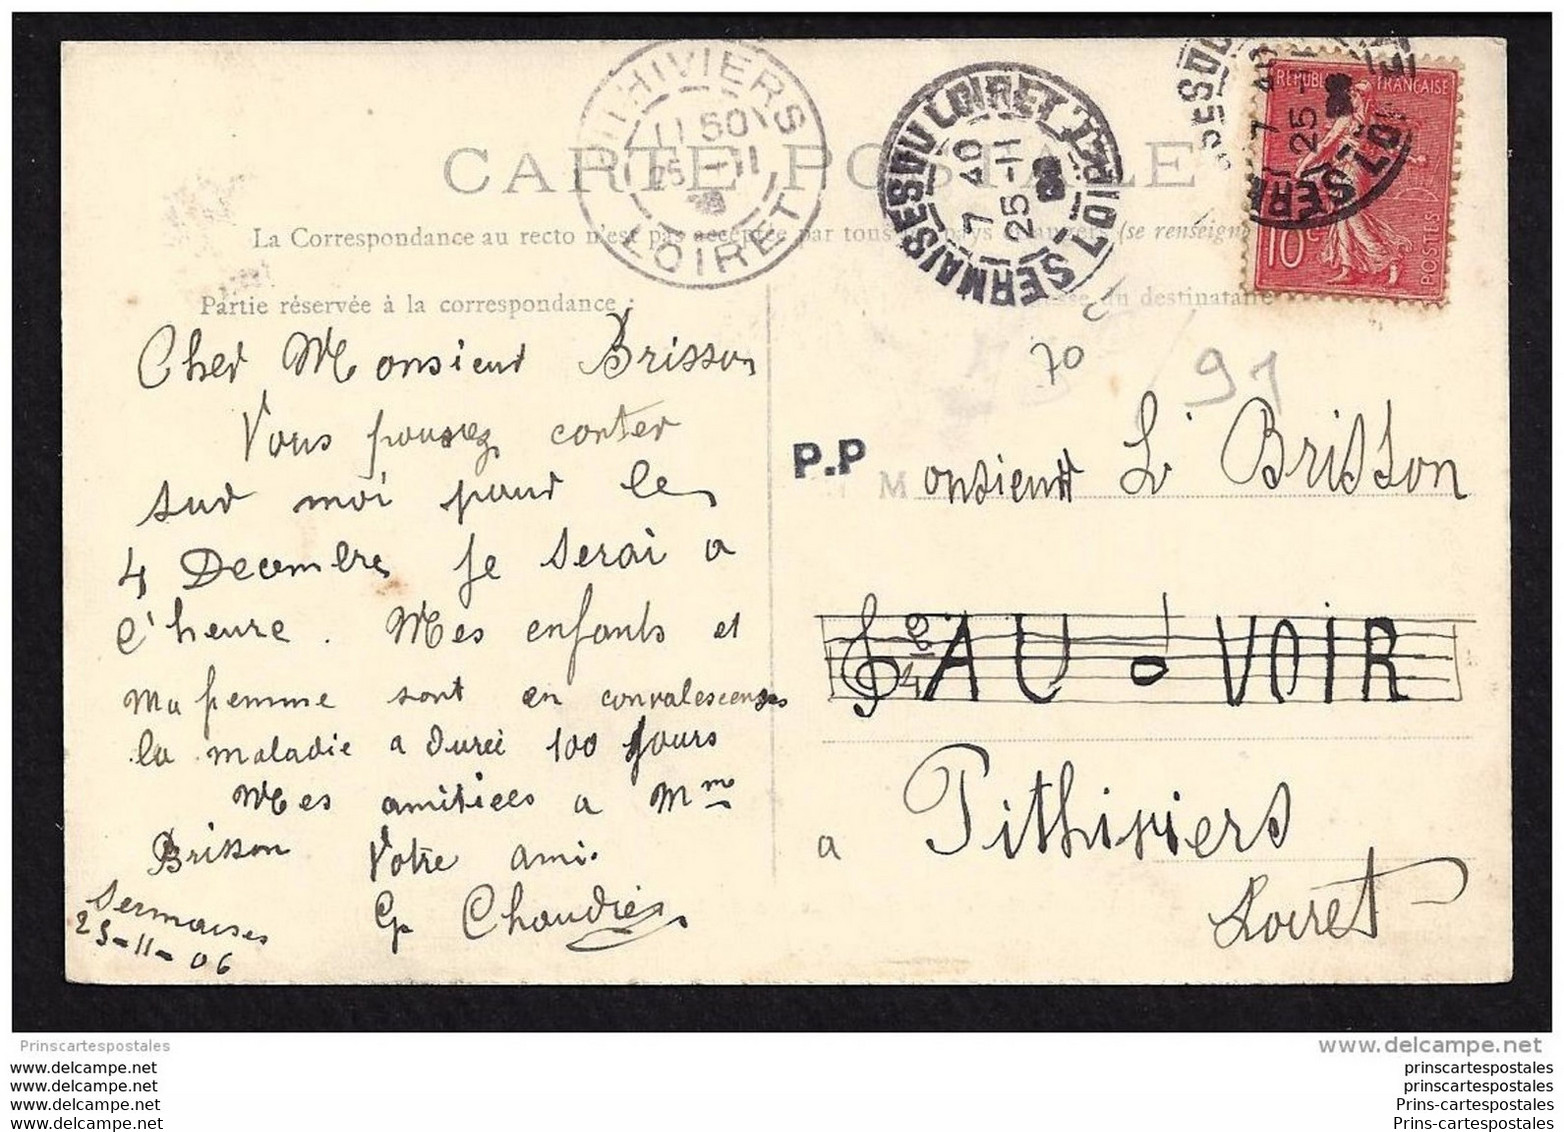 CARTE POSTALE
La Correspondance au recto n'est pas acceptée par tous pays étrangers (se renseign
PITHIVIERS
11 50
25 -11
LOIRET
SERMAISES DU LOIRET
7 40
25 -11
LOIRET
7 40
25
REPUBLIQUE FRANÇAISE
10 c
POSTES
Partie réservée à la correspondance :
Cher Monsieur Brisson
Vous pouvez conter
sur moi pour le
4 Decembre je serai a
l'heure. Mes enfants et
Ma femme sont en convalescense
la maladie a durée 100 jours
Mes amitiées a Mme
Brisson Votre ami.
G Chaudié
Sermaises
25-11-06
du destinataire
70
91
P.P
Monsieur L. Brisson
2/4 AU VOIR
a Pithiviers
Loiret
Prinscartespostales
www.delcampe.net
www.delcampe.net
www.delcampe.net
www.delcampe.net
www.delcampe.net
prinscartespostales
prinscartespostales
Prins-cartespostales
Prins-cartespostales